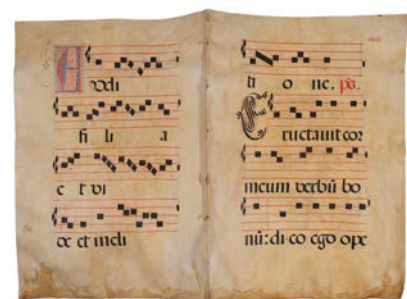 Audi
fi li a
e t vi
de et incli
ti o ne. ps.
Eructauit cor
meum verbū bo
nū: di co ego ope